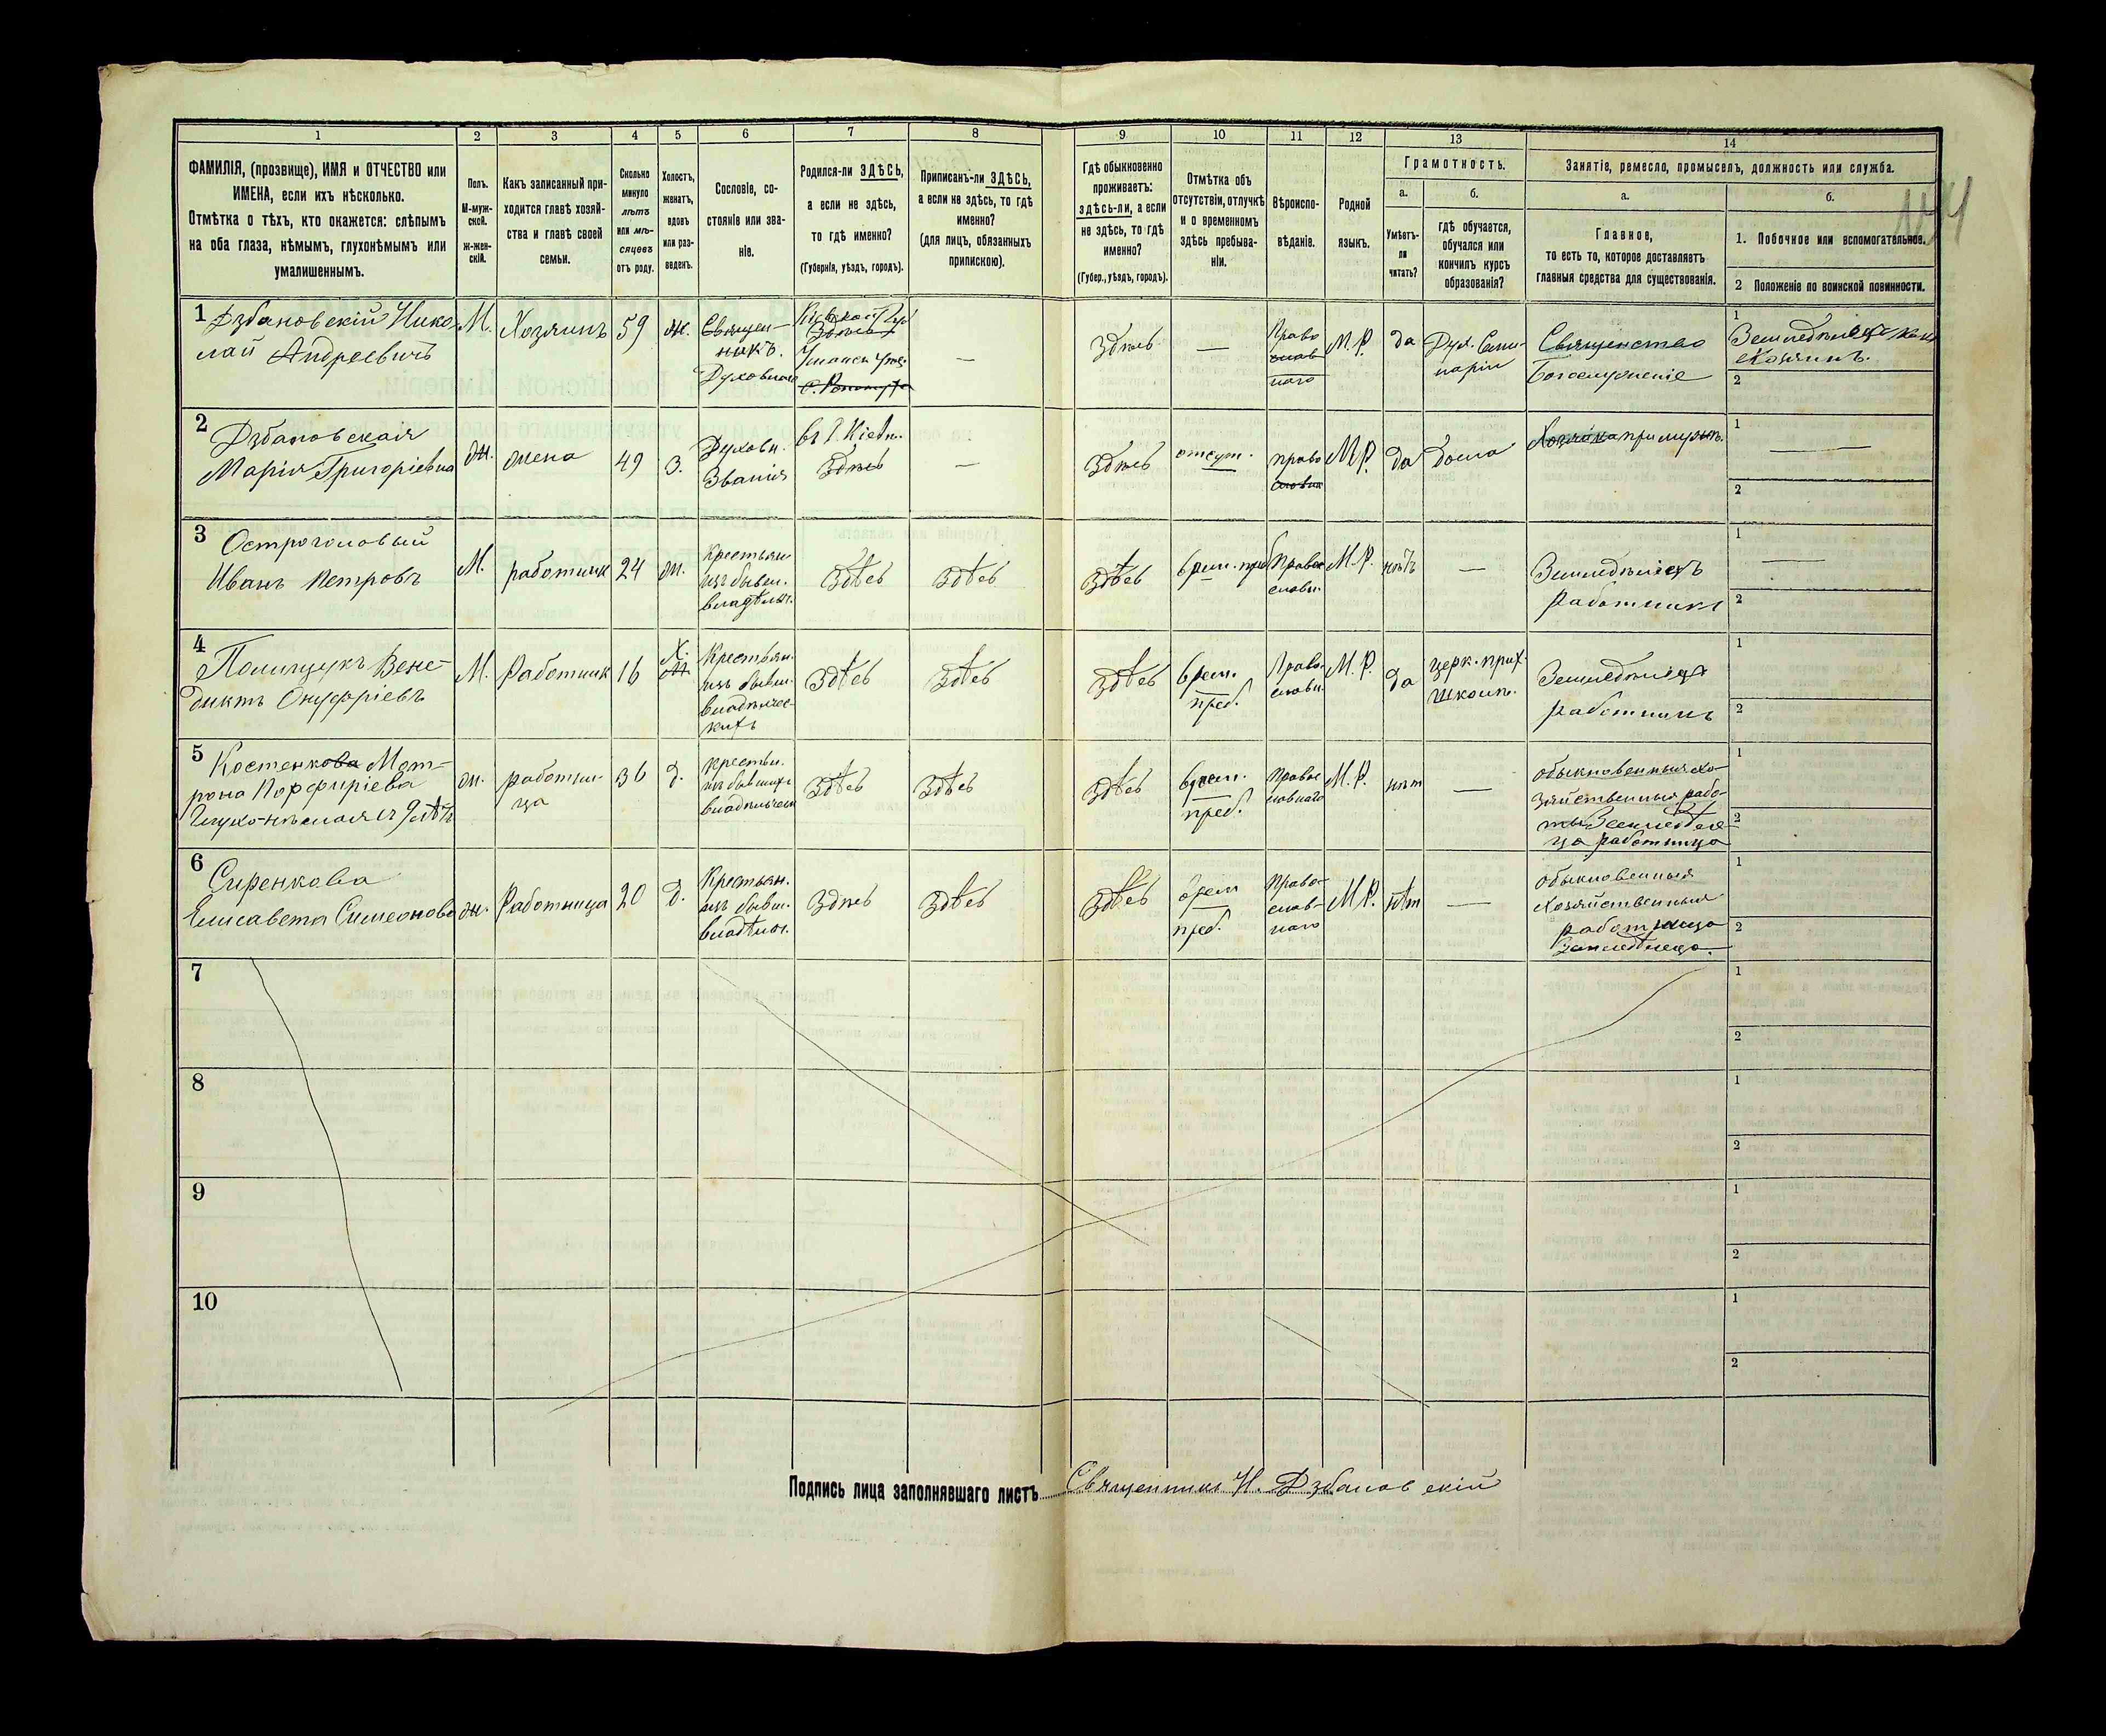 1 2 3 4 5 6 7 8 9 10 11 12 13 14
ФАМИЛІЯ, (прозвище), ИМЯ и ОТЧЕСТВО или
ИМЕНА, если ихъ нѣсколько.
Отмѣтка о тѣхъ, кто окажется: слѣпымъ
на оба глаза, нѣмымъ, глухонѣмымъ или
умалишеннымъ.
Полъ.
М-муж-
ской.
ж-жен-
скій.
Какъ записанный при-
ходится главѣ хозяй-
ства и главѣ своей
семьи.
Сколько
минуло
лѣтъ
или мѣ-
сяцевъ
отъ роду.
Холостъ,
женатъ,
вдовъ
или раз-
веденъ.
Сословіе, со-
стояніе или зва-
ніе.
Родился-ли ЗДѢСЬ,
а если не здѣсь,
то гдѣ именно?
(Губернія, уѣздъ, городъ).
Приписанъ-ли ЗДѢСЬ,
а если не здѣсь, то гдѣ
именно?
(для лицъ, обязанныхъ
припискою).
Гдѣ обыкновенно
проживаетъ:
здѣсь-ли, а если
не здѣсь, то гдѣ
именно?
(Губер., уѣздъ, городъ).
Отмѣтка объ
отсутствіи, отлучкѣ
и о временномъ
здѣсь пребыва-
ніи.
Вѣроиспо-
вѣданіе.
Родной
языкъ.
Грамотность.
а.
Умѣетъ-
ли
читать?
б.
гдѣ обучается,
обучался или
кончилъ курсъ
образованія?
Занятіе, ремесло, промыселъ, должность или служба.
а.
Главное,
то есть то, которое доставляетъ
главныя средства для существованія.
б.
1. Побочное или вспомогательное.
2 Положеніе по воинской повинности.
1 Дзбановскій Нико
лай Андреевичъ
М.
Хозяинъ
59
ж.
Священ-
никъ.
Духовное
Кіевской Губ
Здѣсь
—
Здѣсь
—
Право
слав
наго
М. Р.
да
Дух. Семи-
наріи
Священство
Богослуженіе
1
Хозяинъ.
2
2 Дзбановская
Марія Григоріевна
ж.
жена
49
З.
Духовн.
Званія
въ г. Кіевѣ.
Здѣсь
—
Здѣсь
отсут.
право
славн
М. Р.
да
дома
Хозяйка при мужѣ.
1 —
2
3 Остроголовый
Иванъ Петровъ
М.
работник
24
ж.
Крестьян
изъ бывш.
владѣльч.
Здѣсь
Здѣсь
Здѣсь
врем. преб
Право
славн.
М. Р.
нѣтъ
—
Земледѣлецъ
работникъ
1 —
2
4 Полищукъ Вене-
диктъ Онуфріевъ
М.
Работник
16
Х.
ж.
Крестьян.
изъ бывш.
владѣльчес-
кихъ
Здѣсь
Здѣсь
Здѣсь
врем.
преб.
Право-
славн.
М. Р.
да
церк. прих.
школѣ.
Земледѣлецъ
работникъ
1
2
5 Костенкова Мат-
рона Порфиріева
Глухо-нѣмая съ 9 лѣтъ
ж.
работни-
ца
36
д.
крестьн.
изъ бывшихъ
владѣльческ
Здѣсь
Здѣсь
Здѣсь
врем.
преб.
Право
славнаго
М. Р.
нѣт
—
обыкновенныя хо-
зяйственныя рабо-
ты Земледѣли-
ца работница
1
2
6 Сиренкова
Елисавета Симеонова
ж.
Работница
20
д.
Крестьян.
изъ бывш.
владѣльч.
Здѣсь
Здѣсь
Здѣсь
врем
преб.
Право-
слав-
наго
М. Р.
нѣт
—
обыкновенныя
Хозяйственныя
работница
1
2
7
1
2
8
1
2
9
1
2
10
1
2
Подпись лица заполнявшаго листъ Священникъ Н. Дзбановскій